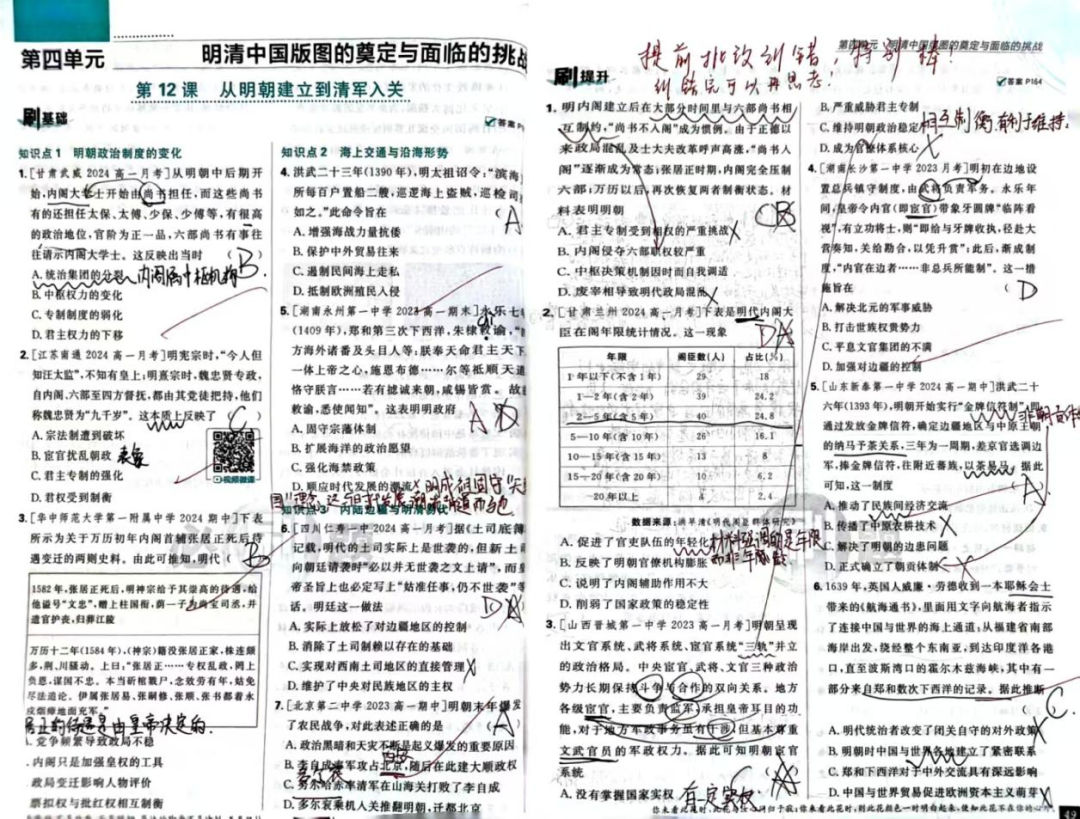 第四单元
明清中国版图的奠定与面临的挑战
第 12 课 从明朝建立到清军入关
刷基础
答案P
知识点 1 明朝政治制度的变化
1. [甘肃武威 2024 高一月考]从明朝中后期开
始,内阁大学士开始由 担任,而这些尚书
有的还担任太保、太傅、少保、少傅等,有很高
的政治地位,官阶为正一品,六部尚书有事往
往请示内阁大学士。这反映出当时 ( )
B
A. 统治集团的分裂
内阁属中枢机构
B. 中枢权力的变化
C. 专制制度的弱化
D. 君主权力的下移
2. [江苏南通 2024 高一月考]明宪宗时,“今人但
知汪太监”,不知有皇上;明熹宗时,魏忠贤专政,
自内阁、六部至四方督抚,都由其党徒把持,他们
称魏忠贤为“九千岁”。这本质上反映了 ( )
C
A. 宗法制遭到破坏
B. 宦官扰乱朝政
表象
C. 君主专制的强化
D. 君权受到制衡
视频微课
3. [华中师范大学第一附属中学 2024 期中]下表
所示为关于万历初年内阁首辅张居正死后待
遇变迁的两则史料。由此可推知,明代 ( )
B
1582 年,张居正死后,明神宗给予其崇高的待遇,给
他谥号“文忠”,赠上柱国衔,荫一子为尚宝司丞,并
遣官护丧,归葬江陵
万历十二年(1584 年),(神宗)籍没张居正家,株连颇
多,荆、川骚动。上曰:“张居正……专权乱政,罔上
负恩,谋国不忠。本当斫棺戮尸,念效劳有年,姑免
尽法追论。伊属张居易、张嗣修、张顺、张书都着永
戍烟瘴地面充军。”
居正的待遇是由皇帝决定的.
. 党争频繁导致政局不稳
. 内阁只是加强皇权的工具
政局变迁影响人物评价
票拟权与批红权相互制衡
知识点 2 海上交通与沿海形势
4. 洪武二十三年(1390 年),明太祖诏令:“滨海
所每百户置船二艘,巡逻海上盗贼,巡检司
如之。”此命令旨在 (
A
A. 增强海战力量抗倭
B. 保护中外贸易往来
C. 遏制民间海上走私
D. 抵制欧洲殖民入侵
5. [湖南永州第一中学 2023 高一期末]永乐七
(1409 年),郑和第三次下西洋,朱棣敕谕,“
方海外诸番及头目人等:朕奉天命君主天下
一体上帝之心,施恩布德……尔等祗顺天道
恪守朕言……若有摅诚来朝,咸锡皆赏。故
敕谕,悉使闻知”。这表明明政府
A
A. 固守宗藩体制
B. 扩展海洋的政治愿望
C. 强化海禁政策
D. 顺应时代发展的潮流
知识点 3 内陆边疆与明清易代
6. [四川仁寿一中 2024 高一月考]据《土司底簿
记载,明代的土司实际上是世袭的,但新土司
向朝廷请袭时“必以并无世袭之文上请”,而皇
帝圣旨上也必定写上“姑准任事,仍不世袭”等
话。明廷这一做法
D
A. 实际上放松了对边疆地区的控制
B. 消除了土司制赖以存在的基础
C. 实现对西南土司地区的直接管理
D. 维护了中央对民族地区的主权
7. [北京第二中学 2023 高一期中]明朝末年爆发
了农民战争,对此表述正确的是 (
A
A. 政治黑暗和天灾不断是起义爆发的重要原因
B. 李自成率军攻占北京,随后在此建大顺政权
C. 努尔哈赤率清军在山海关打败了李自成
D. 多尔衮乘机入关推翻明朝,迁都北京
第四单元 明清中国版图的奠定与面临的挑战
提前批改训错,特别棒!
训练完可以再思考
刷提升
答案 P164
1. 明内阁建立后在大部分时间里与六部尚书相
互制约,“尚书不入阁”成为惯例。由于正德以
来政局混乱及士大夫改革呼声高涨,“尚书入
阁”逐渐成为常态;张居正时期,内阁完全压制
六部;万历以后,再次恢复两者制衡状态。材
料表明明朝 ( )
B
A. 君主专制受到相权的严重挑战
B. 内阁侵夺六部职权较严重
C. 中枢决策机制因时而自我调适
D. 废宰相导致明代政局混乱
2. [甘肃兰州 2024 高一月考]下表是明代内阁大
臣在阁年限统计情况。这一现象 ( )
D
年限 阁臣数(人) 占比(%)
1 年以下(不含 1 年) 29 18
1—2 年(含 2 年) 39 24.2
2—5 年(含 5 年) 40 24.8
5—10 年(含 10 年) 26 16.1
10—15 年(含 15 年) 13 8
15—20 年(含 20 年) 10 6.2
20 年以上 4 2.4
A. 促进了官吏队伍的年轻化
B. 反映了明朝官僚机构膨胀
C. 说明了内阁辅助作用不大
D. 削弱了国家政策的稳定性
3. [山西晋城第一中学 2023 高一月考]明朝呈现
出文官系统、武将系统、宦官系统“三轨”并立
的政治格局。中央宦官、武将、文官三种政治
势力长期保持斗争与合作的双向关系。地方
各级宦官,主要负责监军,承担皇帝耳目的功
能,对于地方军政事务虽有干涉,但基本尊重
文武官员的军政权力。据此可知明朝宦官
系统 ( )
A. 没有掌握国家实权
有一定实权
B. 严重威胁君主专制
C. 维持明朝政治稳定
相互制衡,有利于维持.
D. 成为官僚体系核心
4. [湖南长沙第一中学 2023 月考]明初在边地设
置总兵镇守制度,由武将负责军务。永乐年
间,皇帝令内官(即宦官)带象牙圆牌“临阵看
视,有立功将士,则“即给与牙牌收执,径赴大
营奏知,关给勘合,以凭升赏”;此后,渐成制
度,“内官在边者……非总兵所能制”。这一措
施旨在 ( )
D
A. 解决北元的军事威胁
B. 打击世族权贵势力
C. 平息文官集团的不满
D. 加强对边疆的控制
5. [山东新泰第一中学 2024 高一期中]洪武二十
六年(1393 年),明朝开始实行“金牌信符制”,即
通过发放金牌信符,确定边疆地区与中原王朝
的纳马予茶关系,三年为一周期,差京官选调边
军,捧金牌信符,往附近番族,以茶易马。据此
可知,这一制度 ( )
A
A. 推动了民族间经济交流
B. 传播了中原农耕技术
C. 解决了明朝的边患问题
D. 正式确立了朝贡体制
6. 1639 年,英国人威廉·劳德收到一本耶稣会士
带来的《航海通书》,里面用文字向航海者指示
了连接中国与世界的海上通道:从福建省南部
海岸出发,绕经整个东南亚,到达印度洋各港
口,直至波斯湾口的霍尔木兹海峡,其中有一
部分来自郑和数次下西洋的记录。据此推断
C
A. 明代统治者改变了闭关自守的对外政策
B. 明朝时中国与世界各地建立了紧密联系
C. 郑和下西洋对于中外交流具有深远影响
D. 中国与世界贸易促进欧洲资本主义萌芽
你未看此花时,此花与汝心同归于寂;你来看此花时,则此花颜色一时明白起来,便知此花不在你的心外。
49